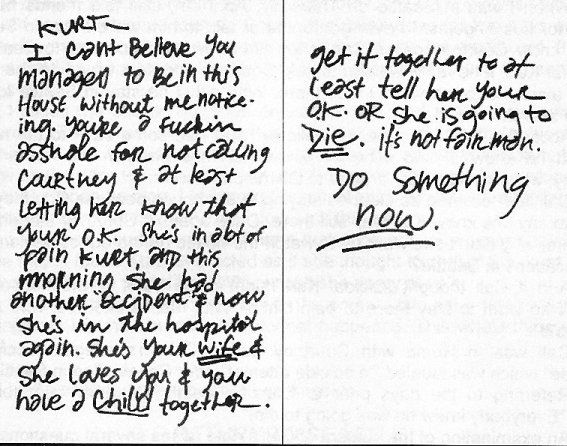 KURT—
I cant Believe you
managed to Be in this
House without me notice-
ing. you're a fuckin
asshole for not calling
Courtney & at least
Letting her know that
your O.K. She's in a lot of
pain Kurt, and this
morning she had
another accident & now
she's in the hospital
again. She's your wife &
She loves you & you
have a child together
get it together to at
least tell her your
O.K. OR she is going to
Die. it's not fair man.
DO Something
now.